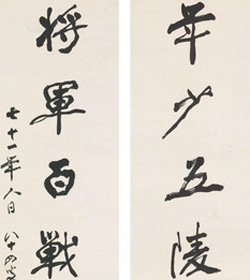 年少五陵
將軍百戰
七十一年人日 八十四